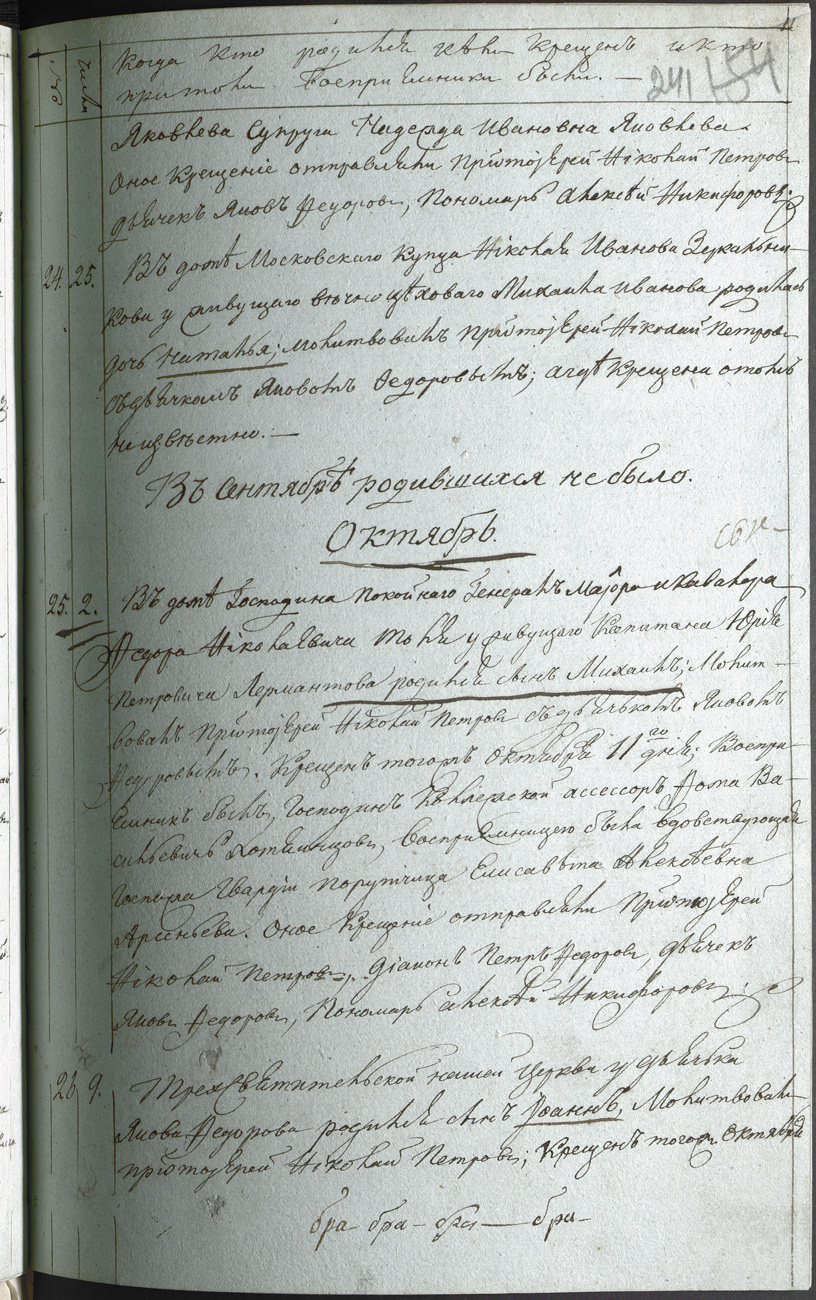 11
Когда кто родился и кѣмъ крещенъ и кто
число
при томъ воспрiемники были. —
241 154
Яковлева Супруга Надежда Ивановна Яковлева.
Оное крещенiе отправляли Протоiерей Нiколай Петровъ
дьячекъ Яковъ Федоровъ, пономарь Алексѣй Никифоровъ;
24. 25. Въ домѣ Московскаго купца Нiколая Иванова Зеркальни-
кова у живущаго вѣчно цѣховаго Михаила Иванова родилась
дочь Наталья; молитвовалъ Протоiерей Нiколай Петровъ
съ дьячкомъ Яковомъ Федоровымъ; а гдѣ крещена о томъ
неизвѣстно. —
Въ Сентябрѣ родившихся не было.
Октябрь.
25. 2. Въ домѣ Господина покойнаго Генералъ Маiора и Кавалера
Федора Нiколаевича Толя у живущаго Капитана Юрiя
Петровича Лермантова родился сынъ Михаилъ; Молит-
вовалъ Протоiерей Нiколай Петровъ съ дьячкомъ Яковомъ
Федоровымъ. Крещенъ тогожъ Октября 11го дня; Воспрi-
емникъ былъ, Господинъ Коллежской ассессоръ Фома Ва-
сильевичъ Хотяинцовъ, воспрiемницею была вдовствующая
Госпожа Гвардiи Порутчица Елисавѣта Алексѣевна
Арсеньева. Оное крещенiе отправляли Протоiерей
Нiколай Петровъ, Дiаконъ Петръ Федоровъ, дьячекъ
Яковъ Федоровъ, Пономарь Алексѣй Никифоровъ;
26 9. Трехсвятительской нашей церкви у дьячка
Якова Федорова родился сынъ Iоаннъ, Молитвовалъ
протоiерей Нiколай Петровъ; Крещенъ тогожъ Октября